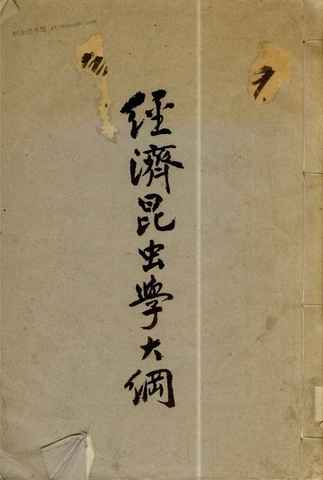 經濟昆虫學大綱